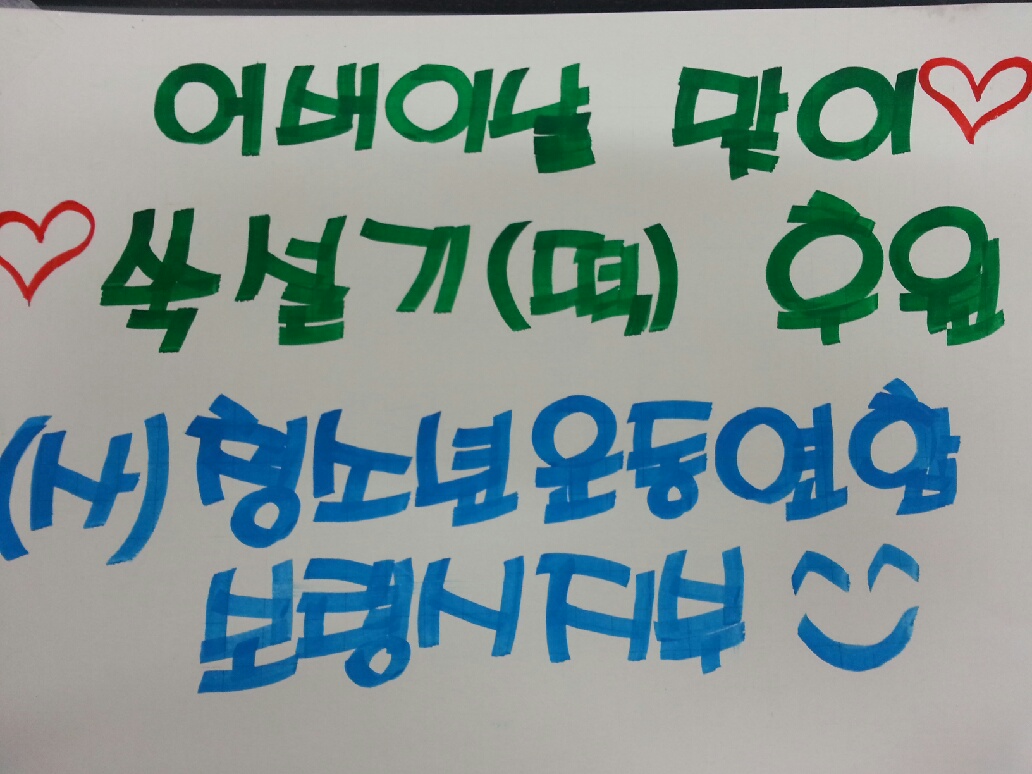 어버이날 맞이
쑥설기(떡) 후원
(사)청소년운동연합
보령시지부